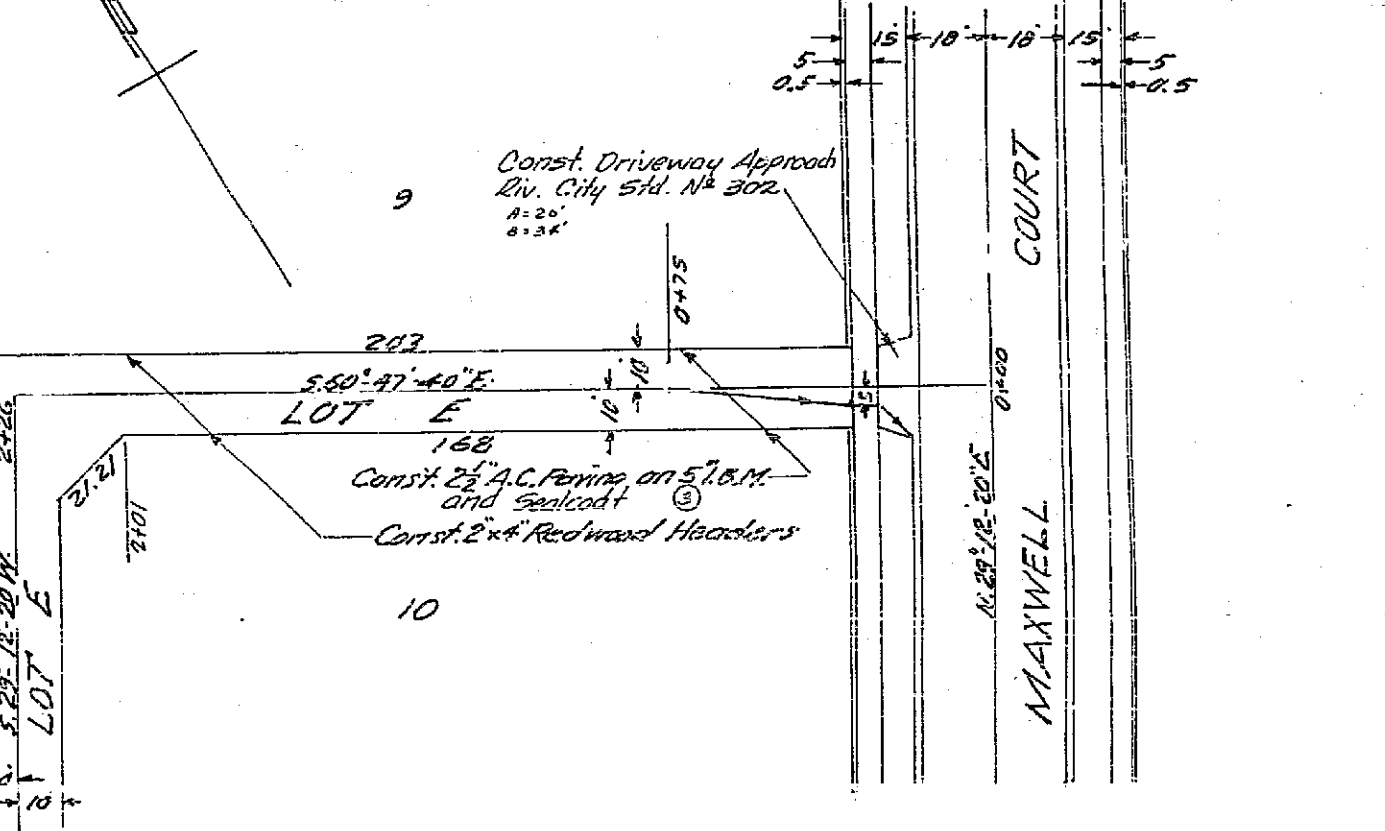 15' 18' 18' 15'
5 5
0.5 0.5
Const. Driveway Approach
Riv. City Std. Nº 302
A=20'
B=34'
9
COURT
0+75
203
10'
S.60°-47'-40"E.
LOT E
10'
5'
0+00
168
2+26
21.21
2+01
Const. 2½" A.C. Paving on 5" I.B.M.
and Sealcoat
Const. 2"x4" Redwood Headers
10
N.29°-12'-20"E
MAXWELL
S.29°-12'-20"W.
LOT E
10'